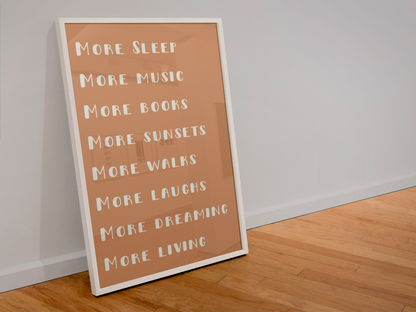 More Sleep
More music
More books
More sunsets
More walks
More laughs
More dreaming
More living